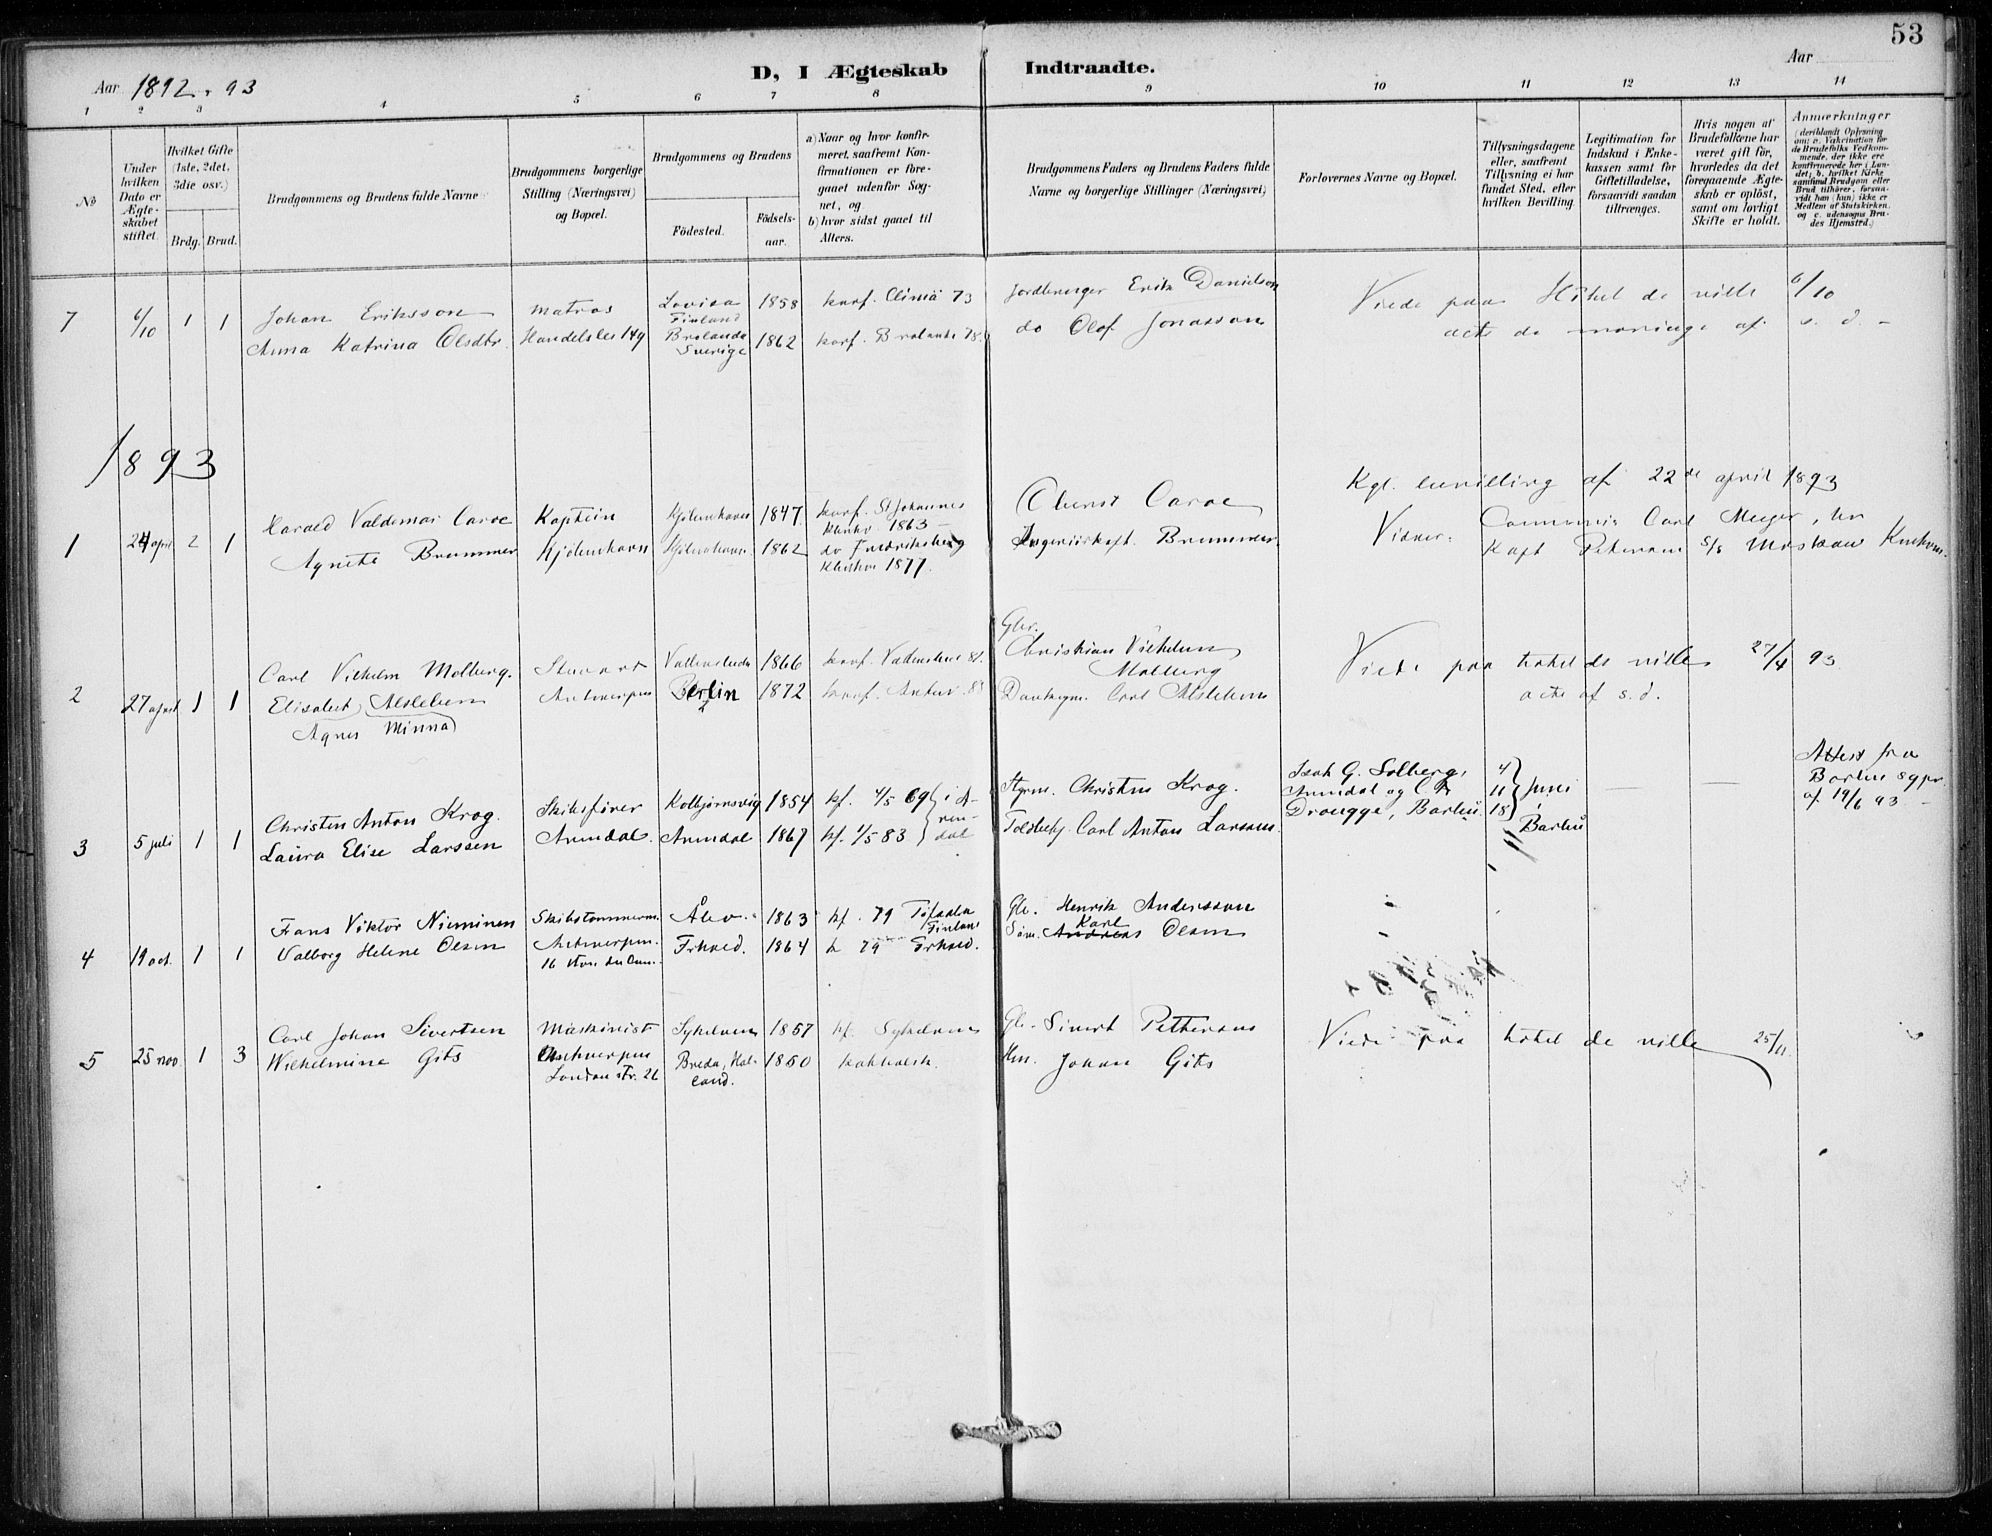 53
D, I Ægteskab Indtraadte.
Aar 1892 - 93
Aar
1 2 3 4 5 6 7 8 9 10 11 12 13 14
No
Under hvilken Dato er Ægteskabet stiftet.
Hvilket Gifte (1ste, 2det, 3die osv.)
Brdg. Brud.
Brudgommens og Brudens fulde Navne
Brudgommens borgerlige Stilling (Næringsvei) og Bopæl.
Brudgommens og Brudens
Födested.
Födselsaar.
a) Naar og hvor konfirmeret, saafremt Konfirmationen er foregaaet udenfor Sognet, og
b) hvor sidst gaaet til Alters.
Brudgommens Faders og Brudens Faders fulde Navne og borgerlige Stillinger (Næringsvei)
Forlovernes Navne og Bopæl.
Tillysningsdagene eller, saafremt Tillysning ei har fundet Sted, efter hvilken Bevilling.
Legitimation for Indskud i Enkekassen samt for Giftetilladelse, forsaavidt saadan tiltrænges.
Hvis nogen af Brudefolkene har været gift för, hvorledes da det foregaaende Ægteskab er oplöst, samt om lovligt Skifte er holdt.
Anmærkninger
(deriblandt Oplysning om: a. Vakcination for de Brudefolks Vedkommende, der ikke ere konfirmerede her i Landet; b. hvilket Kirkesamfund Brudgom eller Brud tilhörer, forsaavidt han (hun) ikke er Medlem af Statskirken, og c. udensogns Brudes Hjemsted.)
7 6/10 1 1 Johan Eriksson Matros Lovisa Finland 1858 konf. 73 Erik Danielson Viede paa Hôtel de ville 6/10
Anna Katrina Olsdtr. 149 Brålanda Sverige 1862 konf. Brålanda 78. do Olof Jonasson acte de mariage af s. d. -
1893
Kgl. bevilling af 22de april 1893
1 24 april 2 1 Harald Valdemar Caroe Kaptein Kjöbenhavn 1847 konf. St Johannes 1863 - Oberst Caroe
Agnete Brummer Kjöbenhavn Kjöbenhavn 1862 do Fredriksberg 1877. Brummer Vidner: Carl Meyer, Kapt Petersen S/S Moskau
2 27 april 1 1 Carl Vilhelm Molberg. Stuart 1866 konf. Christian Vilhelm Molberg Viede paa hotel de ville 27/4 93
Elisabet Alsleben Antwerpen Berlin 1872 konf. Antw. Carl Alsleben acte af s. d.
Agnes Minna
3 5 juli 1 1 Christen Anton Krog. Skibsförer Kolbjörnsvig 1854 kf. 4/5 69 i Arendal Styrm. Christen Krog. Isak G. Solberg, Arendal og 4 11 18 juni Barbu Attest fra Barbu sgpr. af 19/6 93 -
Laura Elise Larssen Arendal. Arendal 1867 kf. 1/5 83 Carl Anton Larssen. Drougge, Barbu
4 19 oct. 1 1 Frans Viktor Nieminen Skibstömmerm. Åbo. 1863 kf. 79 Finland Henrik Andersson
Valborg Helene Olsen Antwerpen. 16 1864 k 79 Karl Andreas Olsen
5 25 nov. 1 3 Carl Johan Sivertsen Maskinist 1857 kf. Sivert Pettersen Viede paa hotel de ville 25/11.
Wilhelmine Gits Antwerpen London str. 26 Breda, Holland. 1850 katholsk. Johan Gits